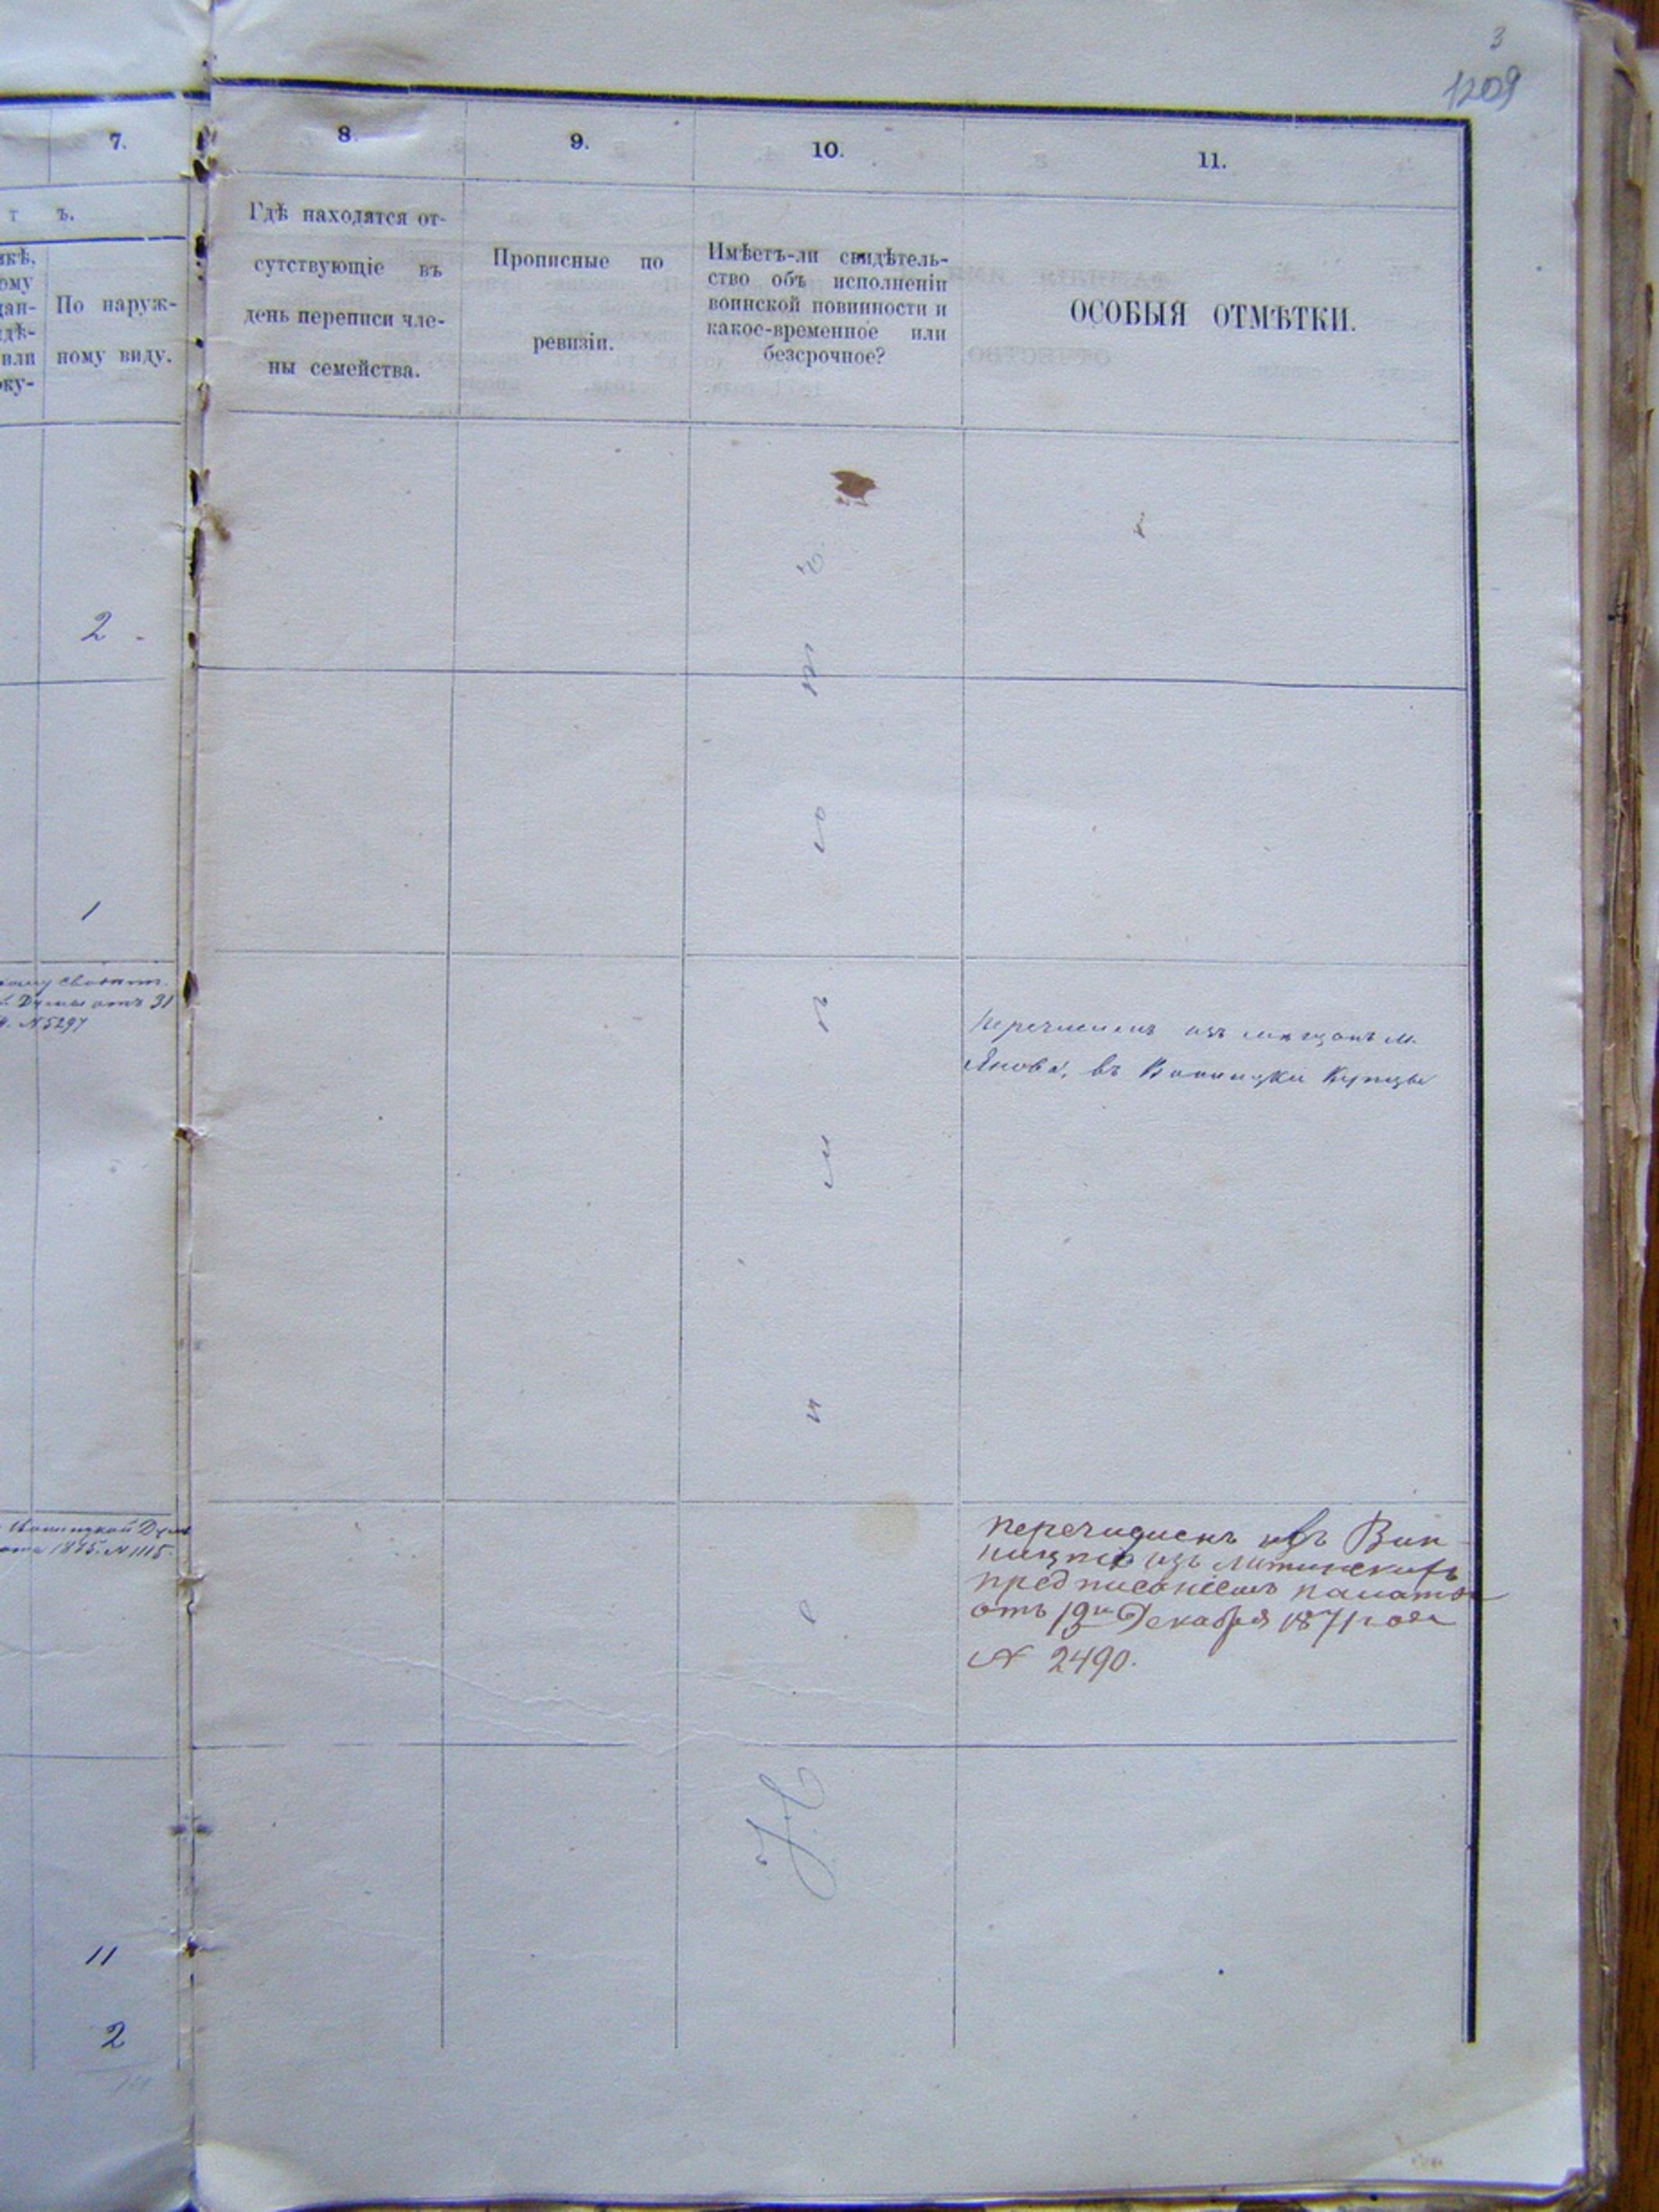 3
1209
7.
8.
9.
10.
11.
т ъ.
По наруж-
ному виду.
Гдѣ находятся от-
сутствующіе въ
день переписи чле-
ны семейства.
Прописные по
ревизіи.
Имѣетъ-ли свидѣтель-
ство объ исполненіи
воинской повинности и
какое-временное или
безсрочное?
ОСОБЫЯ ОТМѢТКИ.
2
1
Думы отъ 31
№ 5297
Перечисленъ изъ мѣщанъ м.
Янова, въ Винницкіе Купцы
Думы
1875. № 1115.
перечисленъ въ Вин-
ницкіе изъ Литинскихъ
предписаніемъ палаты
отъ Декабря 1871 года
№ 2490.
11
2